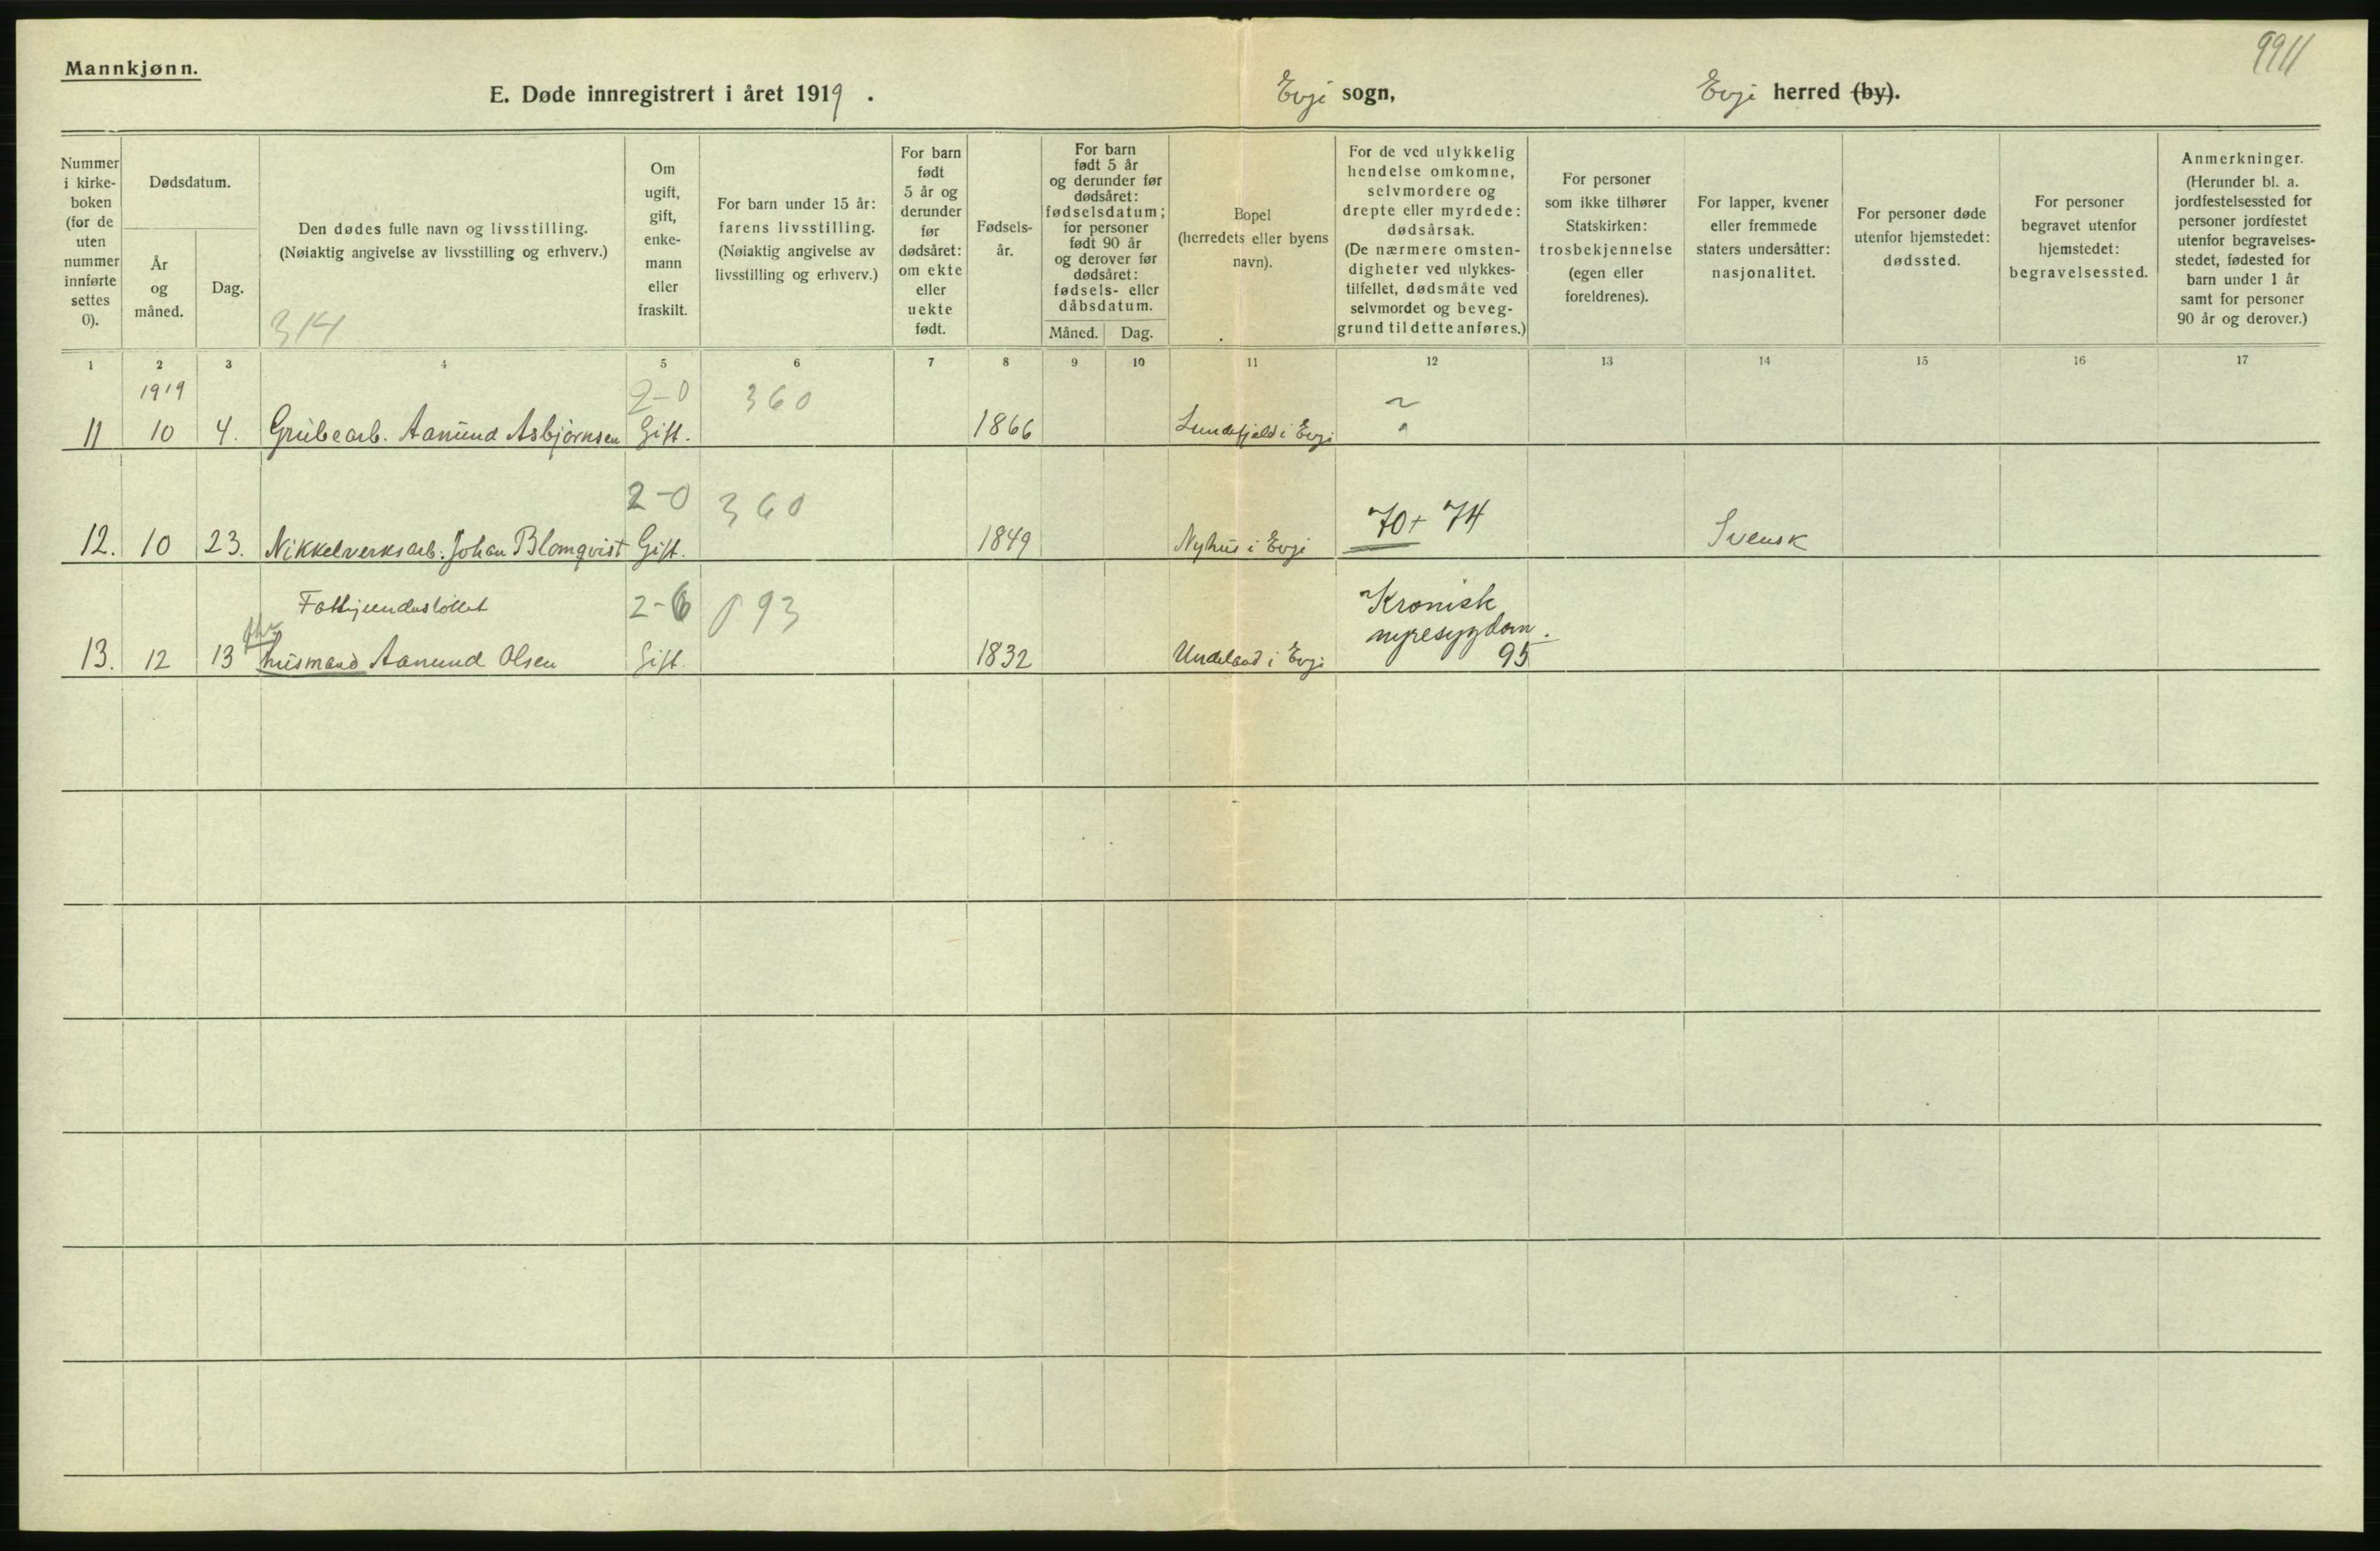 Mannkjønn.
9911
E. Døde innregistrert i året 1919.
Evje sogn,
Evje herred (by).
Nummer
i kirke-
boken
(for de
uten
nummer
innførte
settes
0).
Dødsdatum.
År
og
måned.
Dag.
Den dødes fulle navn og livsstilling.
(Nøiaktig angivelse av livsstilling og erhverv.)
314
Om
ugift,
gift,
enke-
mann
eller
fraskilt.
For barn under 15 år:
farens livsstilling.
(Nøiaktig angivelse av
livsstilling og erhverv.)
For barn
født
5 år og
derunder
før
dødsåret:
om ekte
eller
uekte
født.
Fødsels-
år.
For barn
født 5 år
og derunder før
dødsåret:
fødselsdatum;
for personer
født 90 år
og derover før
dødsåret:
fødsels- eller
dåbsdatum.
Måned. Dag.
Bopel
(herredets eller byens
navn).
For de ved ulykkelig
hendelse omkomne,
selvmordere og
drepte eller myrdede:
dødsårsak.
(De nærmere omsten-
digheter ved ulykkes-
tilfellet, dødsmåte ved
selvmordet og beveg-
grund til dette anføres.)
For personer
som ikke tilhører
Statskirken:
trosbekjennelse
(egen eller
foreldrenes).
For lapper, kvener
eller fremmede
staters undersåtter:
nasjonalitet.
For personer døde
utenfor hjemstedet:
dødssted.
For personer
begravet utenfor
hjemstedet:
begravelsessted.
Anmerkninger.
(Herunder bl. a.
jordfestelsessted for
personer jordfestet
utenfor begravelses-
stedet, fødested for
barn under 1 år
samt for personer
90 år og derover.)
1 2 3 4 5 6 7 8 9 10 11 12 13 14 15 16 17
1919 2-0 360
11 10 4. Grubearb. Aanund Asbjørnsen Gift. 1866 Lundefjeld i Evje
2-0 360 70+ 74
12. 10 23. Nikkelverksarb. Johan Blomqvist Gift. 1849 Nyhus i Evje Svensk
Fattigunderstøttet 2-6 093 Kronisk
nyresygdom.
13. 12 13 husmand Aanund Olsen Gift. 1832 Undeland i Evje 95